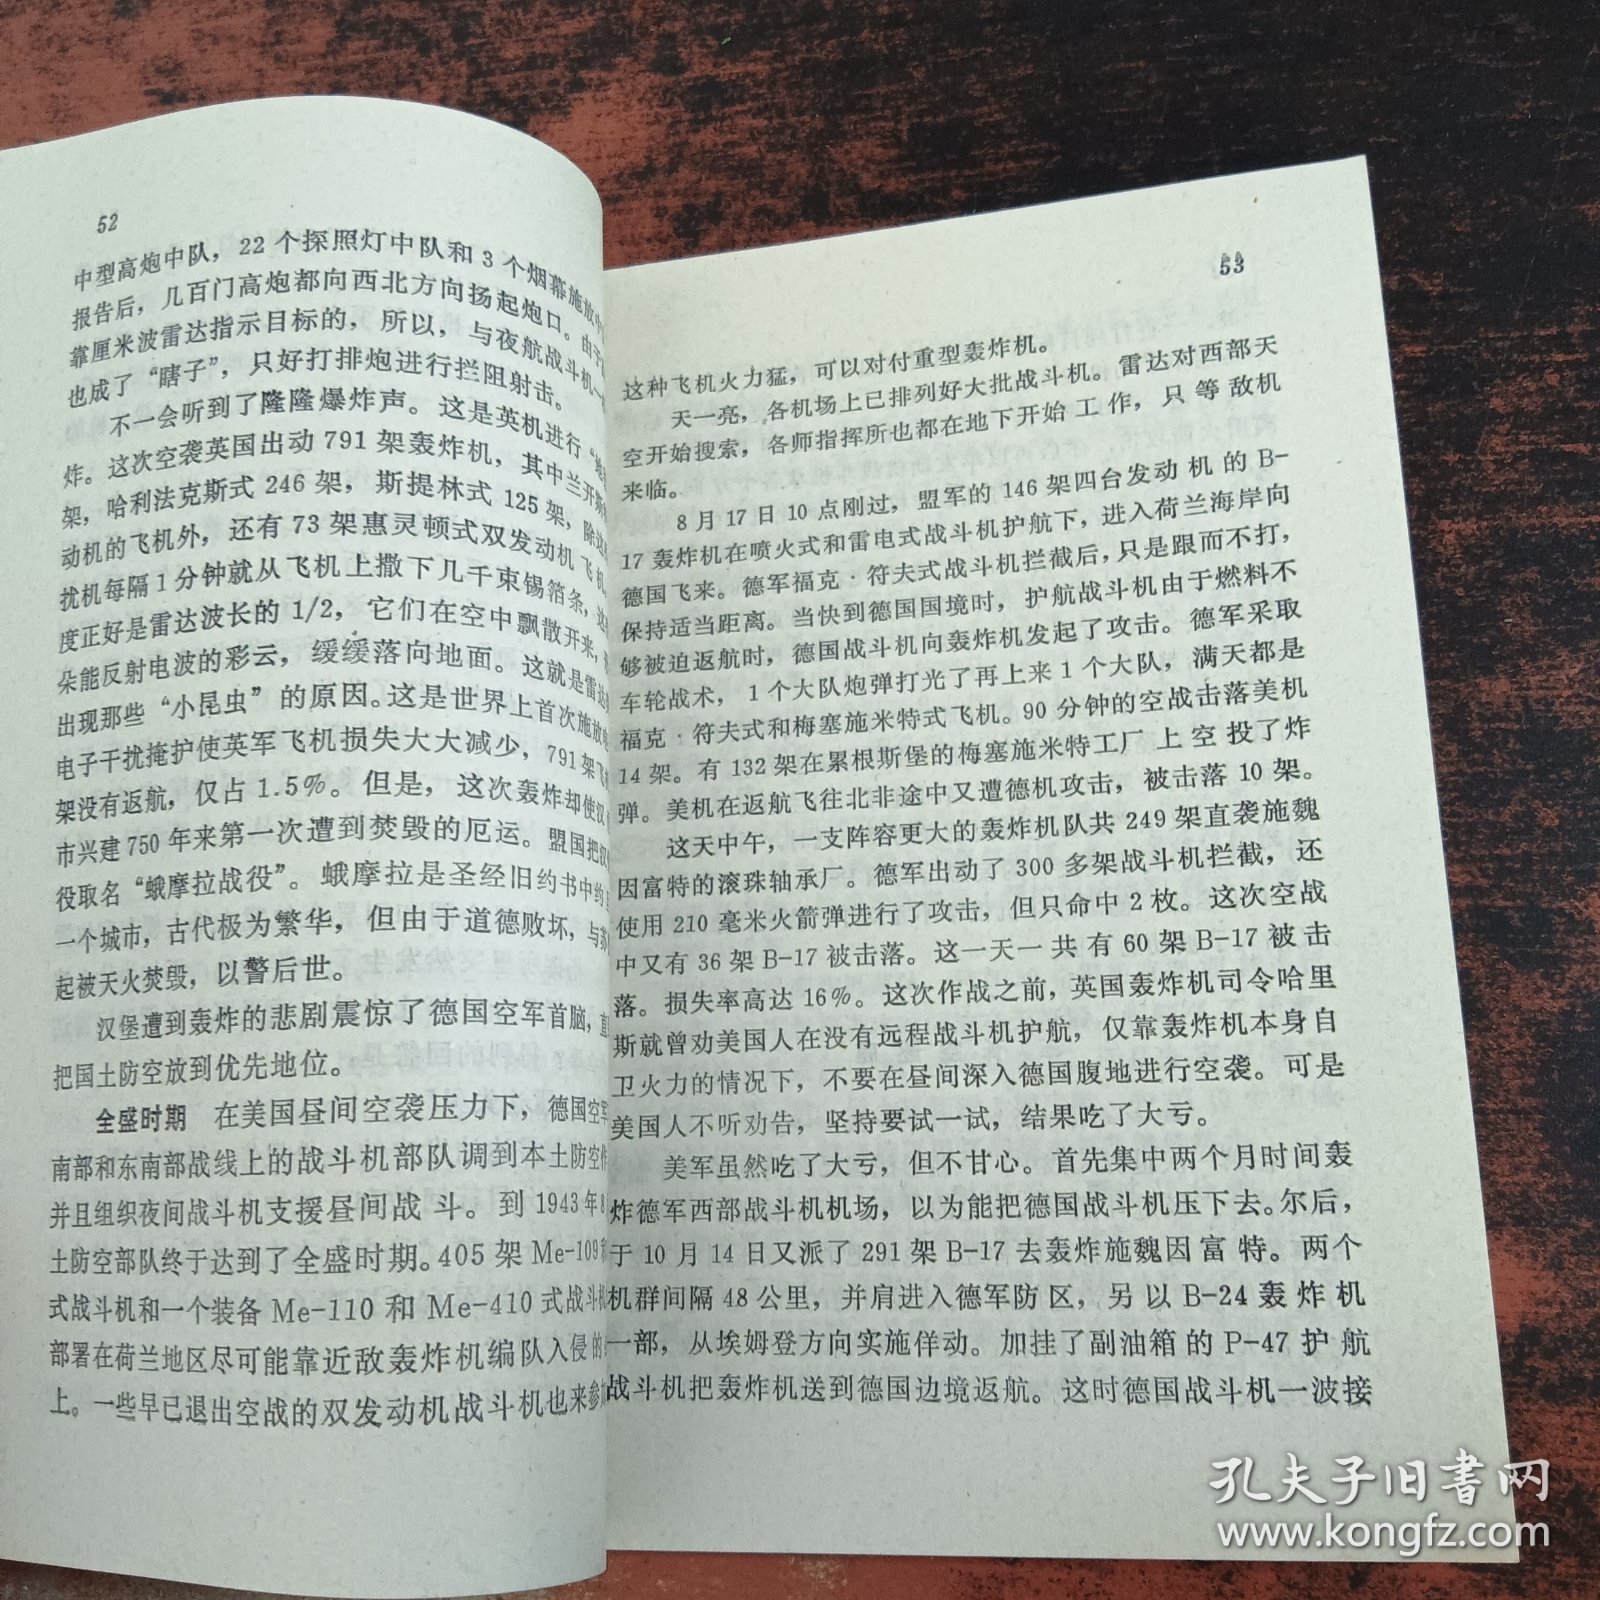 52
中型高炮中队，22个探照灯中队和3个烟幕施放中
报告后，几百门高炮都向西北方向扬起炮口。由于
靠厘米波雷达指示目标的，所以，与夜航战斗机一
也成了“瞎子”，只好打排炮进行拦阻射击。
不一会听到了隆隆爆炸声。这是英机进行“地
炸。这次空袭英国出动791架轰炸机，其中兰开斯
架，哈利法克斯式246架，斯提林式125架，除这
动机的飞机外，还有73架惠灵顿式双发动机飞机
扰机每隔1分钟就从飞机上撒下几千束锡箔条，这
度正好是雷达波长的1/2，它们在空中飘散开来，
朵能反射电波的彩云，缓缓落向地面。这就是雷达
出现那些“小昆虫”的原因。这是世界上首次施放
电子干扰掩护使英军飞机损失大大减少，791架飞
架没有返航，仅占1.5%。但是，这次轰炸却使汉
市兴建750年来第一次遭到焚毁的厄运。盟国把汉
役取名“蛾摩拉战役”。蛾摩拉是圣经旧约书中约
一个城市，古代极为繁华，但由于道德败坏，与
起被天火焚毁，以警后世。
汉堡遭到轰炸的悲剧震惊了德国空军首脑，直
把国土防空放到优先地位。
全盛时期 在美国昼间空袭压力下，德国空军
南部和东南部战线上的战斗机部队调到本土防空作
并且组织夜间战斗机支援昼间战斗。到1943年8
土防空部队终于达到了全盛时期。405架Me-109
式战斗机和一个装备Me-110和Me-410式战斗机
部署在荷兰地区尽可能靠近敌轰炸机编队入侵的
上。一些早已退出空战的双发动机战斗机也来参加
53
这种飞机火力猛，可以对付重型轰炸机。
天一亮，各机场上已排列好大批战斗机。雷达对西部天
空开始搜索，各师指挥所也都在地下开始工作，只等敌机
来临。
8月17日10点刚过，盟军的146架四台发动机的B-
17轰炸机在喷火式和雷电式战斗机护航下，进入荷兰海岸向
德国飞来。德军福克·符夫式战斗机拦截后，只是跟而不打，
保持适当距离。当快到德国国境时，护航战斗机由于燃料不
够被迫返航时，德国战斗机向轰炸机发起了攻击。德军采取
车轮战术，1个大队炮弹打光了再上来1个大队，满天都是
福克·符夫式和梅塞施米特式飞机。90分钟的空战击落美机
14架。有132架在累根斯堡的梅塞施米特工厂上空投了炸
弹。美机在返航飞往北非途中又遭德机攻击，被击落10架。
这天中午，一支阵容更大的轰炸机队共249架直袭施魏
因富特的滚珠轴承厂。德军出动了300多架战斗机拦截，还
使用210毫米火箭弹进行了攻击，但只命中2枚。这次空战
中又有36架B-17被击落。这一天一共有60架B-17被击
落。损失率高达16%。这次作战之前，英国轰炸机司令哈里
斯就曾劝美国人在没有远程战斗机护航，仅靠轰炸机本身自
卫火力的情况下，不要在昼间深入德国腹地进行空袭。可是
美国人不听劝告，坚持要试一试，结果吃了大亏。
美军虽然吃了大亏，但不甘心。首先集中两个月时间轰
炸德军西部战斗机机场，以为能把德国战斗机压下去。尔后，
于10月14日又派了291架B-17去轰炸施魏因富特。两个
机群间隔48公里，并肩进入德军防区，另以B-24轰炸机
一部，从埃姆登方向实施佯动。加挂了副油箱的P-47护航
战斗机把轰炸机送到德国边境返航。这时德国战斗机一波接
孔夫子旧书网
www.kongfz.com